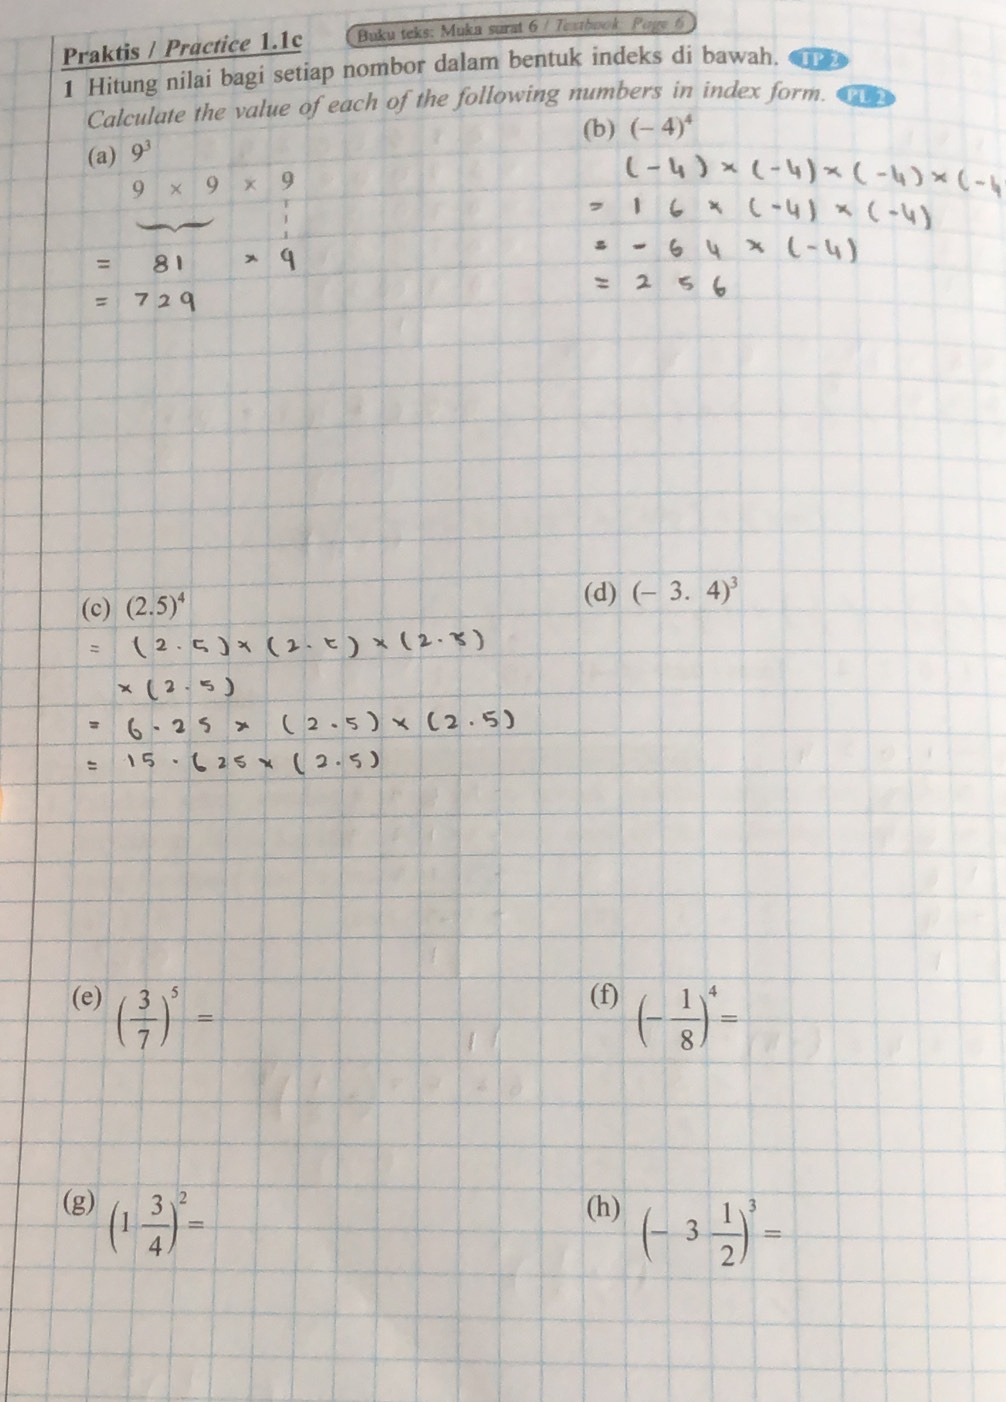 Praktis / Practice 1.1c
Buku teks: Muka surat 6 / Textbook: Page 6
1 Hitung nilai bagi setiap nombor dalam bentuk indeks di bawah. TP 2
Calculate the value of each of the following numbers in index form. PL 2
(a) 9³
9 × 9 × 9
= 81 × 9
= 729
(b) (− 4)⁴
(-4) × (-4) × (-4) × (-4
= 16 × (-4) × (-4)
= -64 × (-4)
= 256
(c) (2.5)⁴
= (2.5) × (2.5) × (2.5)
× (2.5)
= 6.25 × (2.5) × (2.5)
= 15.625 × (2.5)
(d) (− 3. 4)³
(e) (3/7)⁵ =
(f) (− 1/8)⁴ =
(g) (1 3/4)² =
(h) (− 3 1/2)³ =